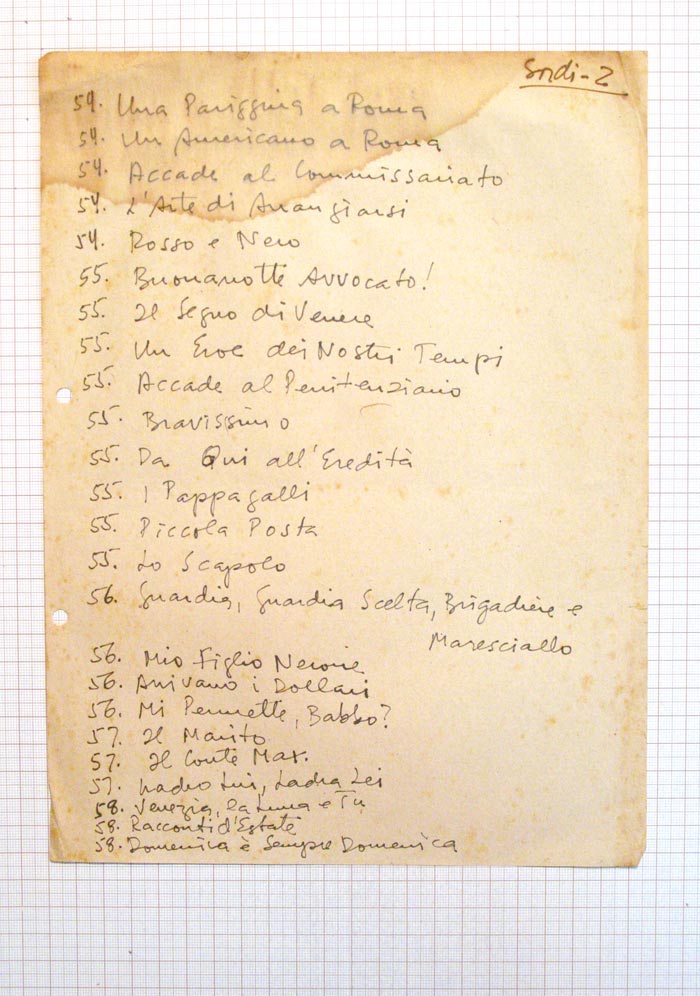 Sordi-2
54. Una Pariggina a Roma
54. Un Americano a Roma
54. Accade al Commissariato
54. L'Arte di Arrangiarsi
54. Rosso e Nero
55. Buonanotte Avvocato!
55. Il Segno di Venere
55. Un Eroe dei Nostri Tempi
55. Accade al Penitenziario
55. Bravissimo
55. Da Qui all'Eredità
55. I Pappagalli
55. Piccola Posta
55. Lo Scapolo
56. Guardia, Guardia Scelta, Brigadiere e
Maresciallo
56. Mio Figlio Nerone
56. Arrivano i Dollari
56. Mi Permette, Babbo?
57. Il Marito
57. Il Conte Max.
57. Ladro Lui, Ladra Lei
58. Venezia, la Luna e Tu
58. Racconti d'Estate
58. Domenica è Sempre Domenica